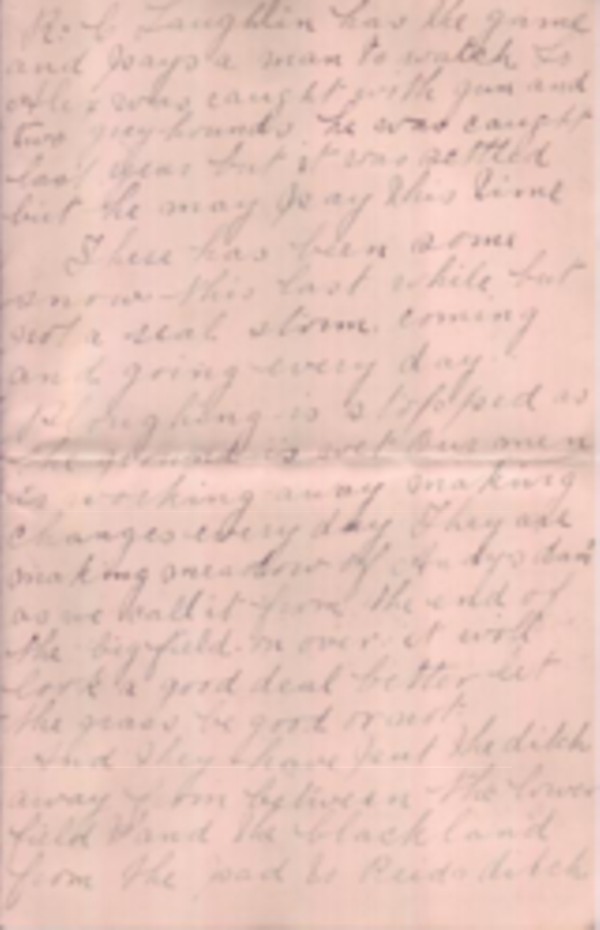 R. C Laughlin has the game
and pays a man to watch is
Alex was caught with gun and
two greyhounds he was caught
last year but it was settled
but he may pay this time
There has been some
snow this last while but
not a real storm. coming
and going every day.
Ploughing is stopped as
the ground is wet Our men
is working away making
changes every day They are
making meadow of Andys dam
as we call it from the end of
the big field. on over it will
look a good deal better let
the grass be good or not
And they have sent the ditch
away from between the lower
field and the black land
from the road to Reids ditch